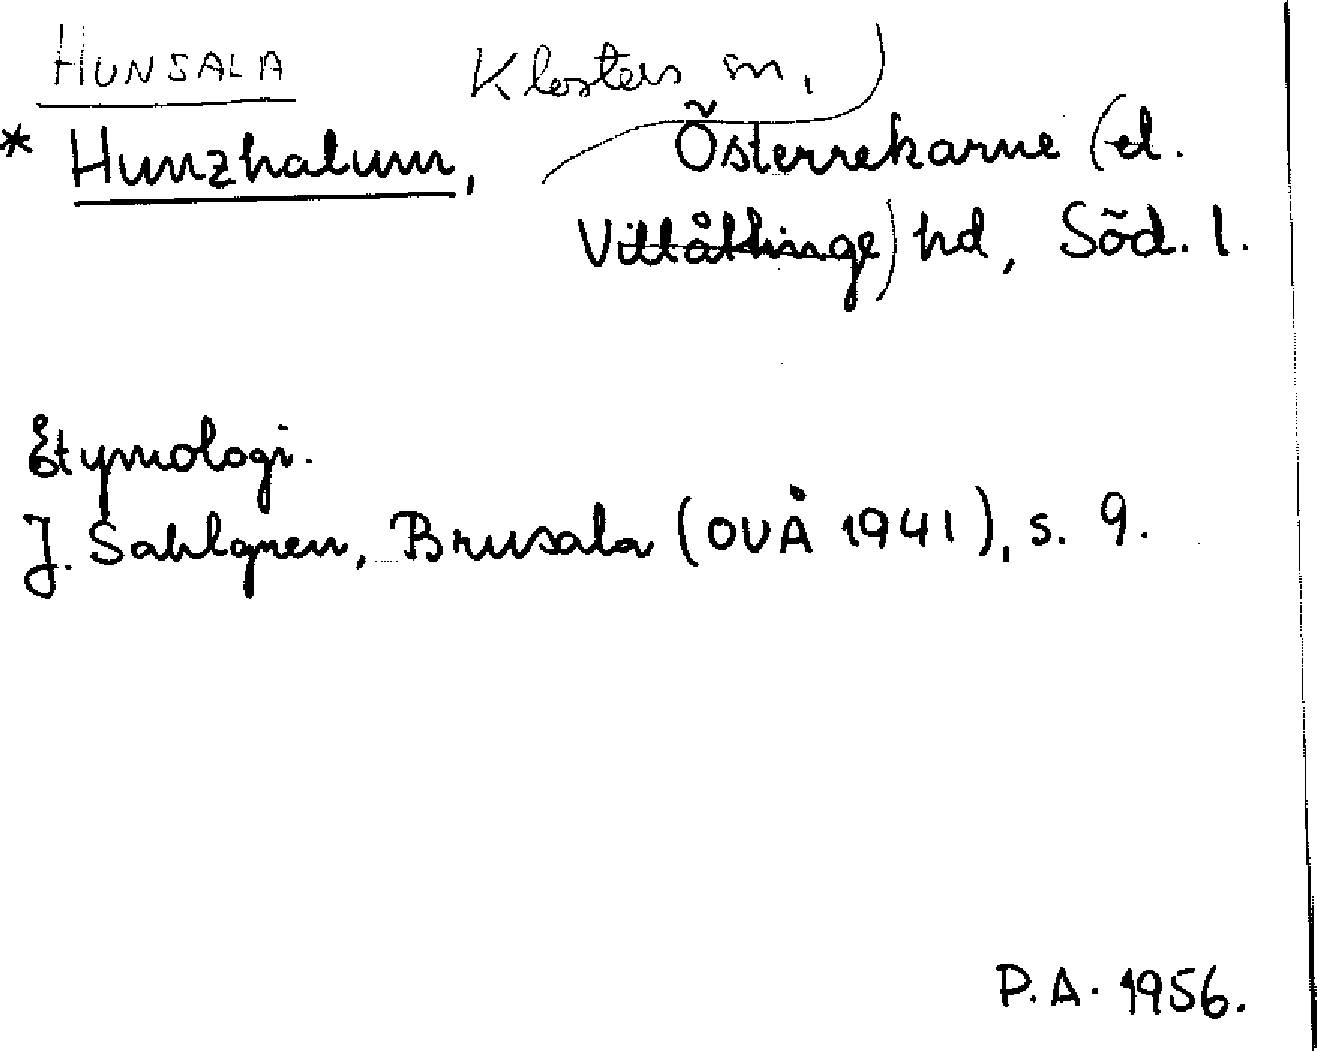 HUNSALA Klosters sn,
* Hunzhalum, Österrekarne (el.
Villåttinge) hd, Söd. l.
Etymologi.
J. Sahlgren, Brusala (OUÅ 1941), s. 9.
P.A. 1956.